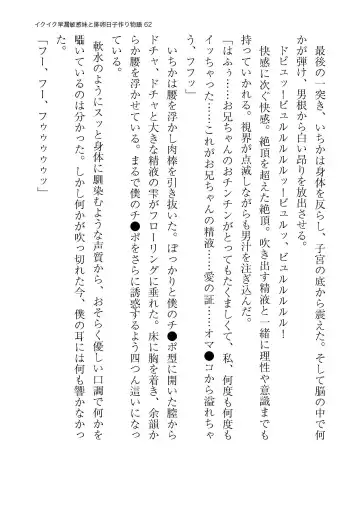 イクイク早漏敏感妹と排卵日子作り物語 62
最後の一突き、いちかは身体を反らし、子宮の底から震えた。そして脳の中で何
かが弾け、男根から白い昂りを放出させる。
ドピュッ！ビュルルルルルッ！ビュルッ、ビュルルルルル！
快感に次ぐ快感。絶頂を超えた絶頂。吹き出す精液と一緒に理性や意識までも
っていかれる。視界が点滅しながらも男汁を注ぎ込んだ。
「はふぅ……お兄ちゃんのおチンチンがとってもたくましくて、私、何度も何度も
イッちゃった……これがお兄ちゃんの精液……愛の証……オマ●コから溢れちゃ
う、フフッ」
いちかは腰を浮かし肉棒を引き抜いた。ぽっかりと僕のチ●ポ型に開いた膣から
ドチャ、ドチャと大きな精液の雫がフローリングに垂れた。床に胸を着き、余韻か
らか腰を浮かせている。まるで僕のチ●ポをさらに誘惑するよう四つん這いになっ
た。
軟水のようにスッと身体に馴染むような声質から、おそらく優しい口調で何かを
囁いているのは分かった。しかし何かが吹っ切れた今、僕の耳には何も響かなかっ
た。
「フー、フー、フゥゥゥゥゥッ」